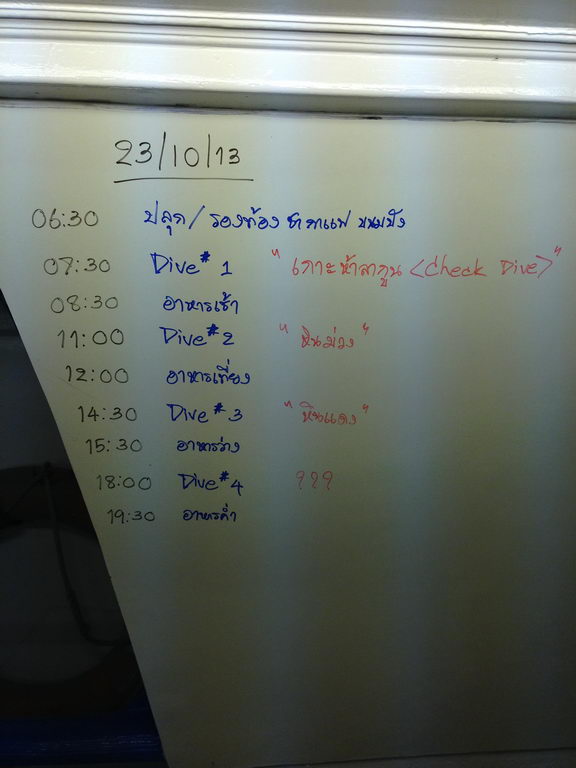 23/10/13
06:30 ปลุก/รองท้อง ชา กาแฟ ขนมปัง
07:30 Dive#1 "เกาะห้าลากูน <Check Dive>"
08:30 อาหารเช้า
11:00 Dive#2 "หินม่วง"
12:00 อาหารเที่ยง
14:30 Dive#3 "หินแดง"
15:30 อาหารว่าง
18:00 Dive#4 ???
19:30 อาหารค่ำ